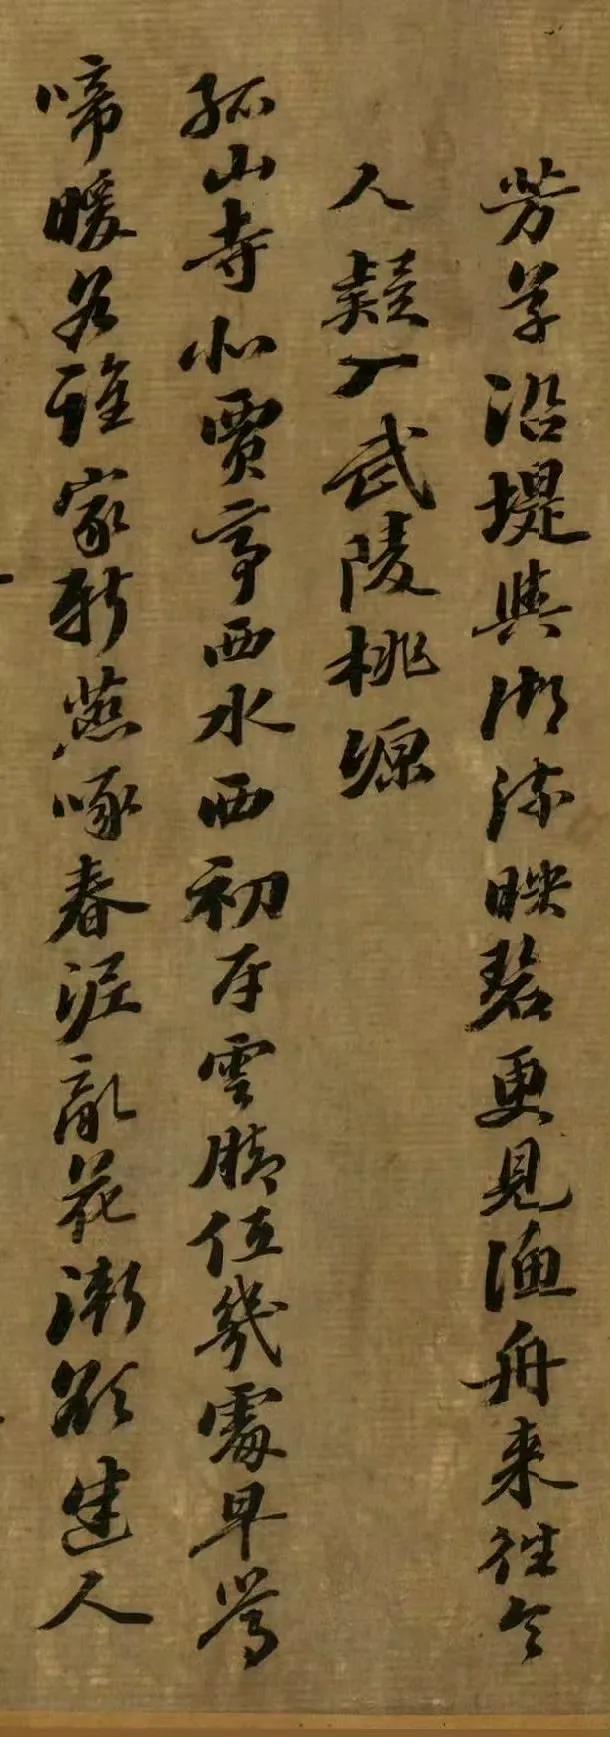 芳草沿堤與湖流映碧更見漁舟來往令
人疑入武陵桃源
孤山寺北賈亭西水西初平雲腳低幾處早鶯
啼暖谷誰家新燕啄春泥亂花漸欲迷人